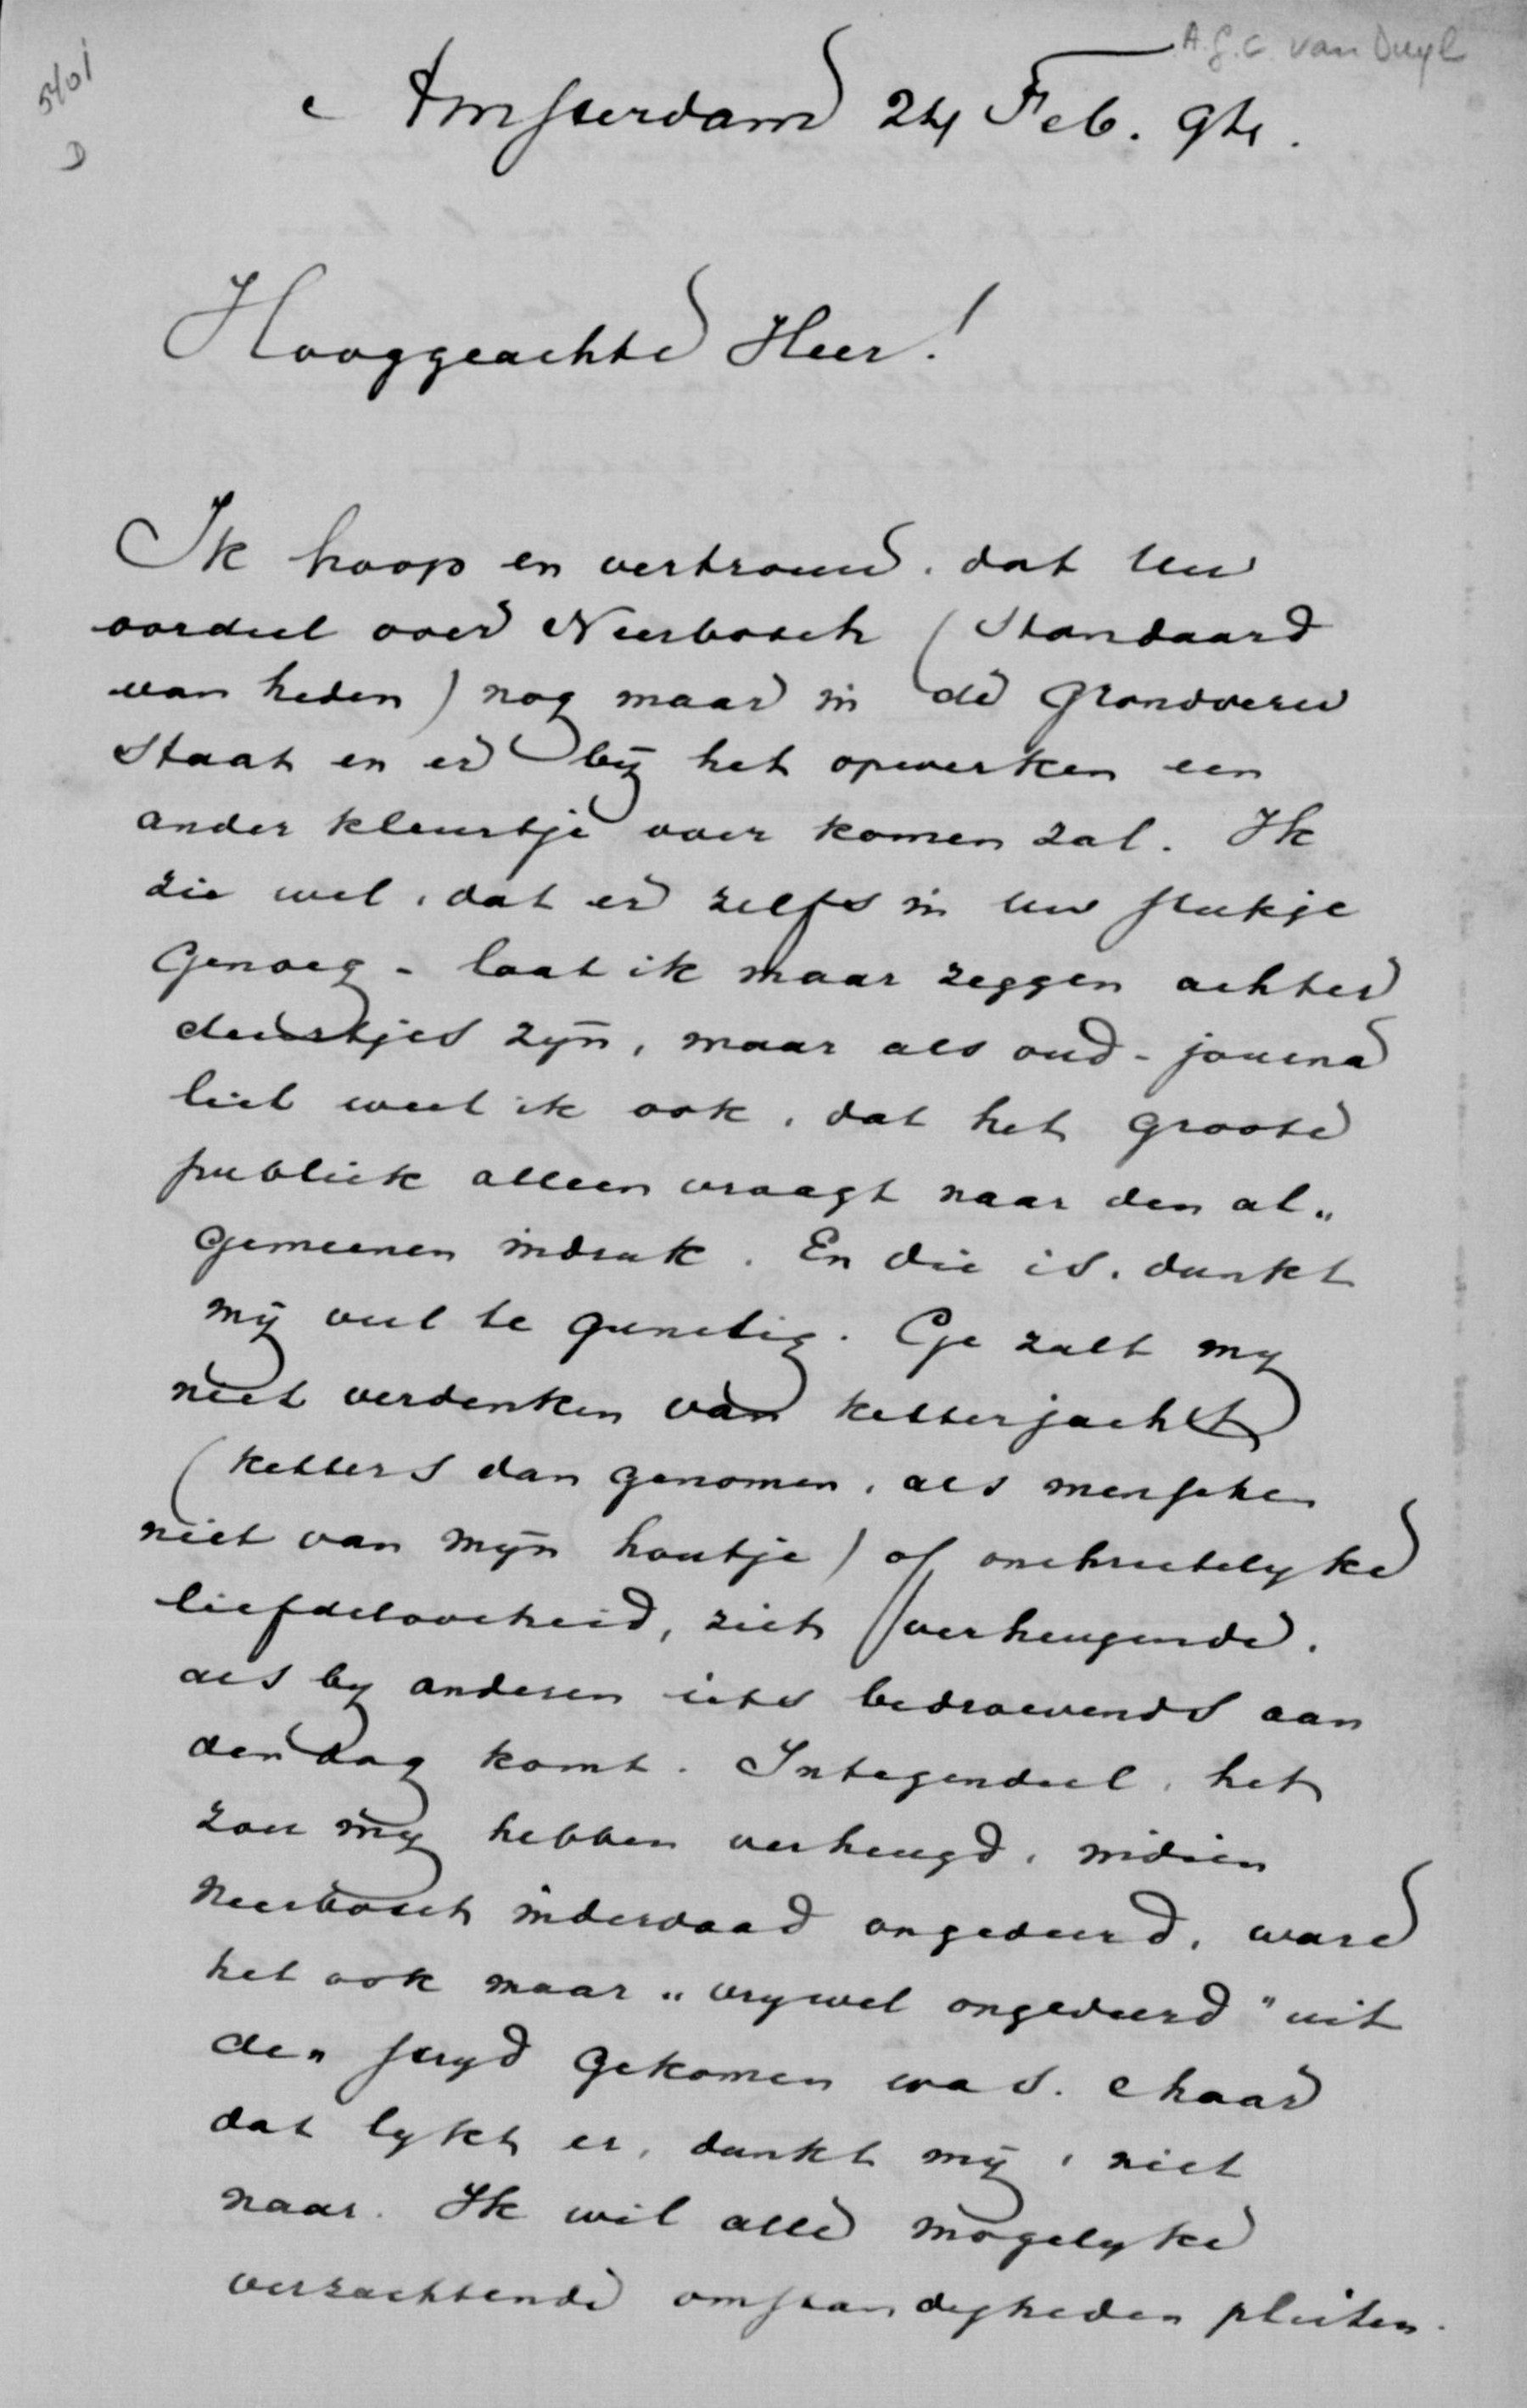 A.G.C. van Duyl
5401
D
Amsterdam 24 Feb. 94.
Hooggeachte Heer!
Ik hoop en vertrouw, dat Uw
oordeel over Neerbosch (Standaard
van heden) nog maar in de grondverw
staat en er bij het opwerken een
ander kleurtje over komen zal. Ik
zie wel, dat er zelfs in uw stukje
genoeg - laat ik maar zeggen achter
deurtjes zijn, maar als oud-journa
list weet ik ook, dat het groote
publiek alleen vraagt naar den al„
gemeenen indruk. En die is, dunkt
mij veel te gunstig. Ge zult my
niet verdenken van ketterjacht
(ketters dan genomen, als menschen
niet van mijn houtje) of onchristelyke
liefdeloosheid, zich verheugende,
als by anderen iets bedroevends aan
den dag komt. Integendeel, het
zou my hebben verheugd, indien
Neerbosch inderdaad ongedeerd, ware
het ook maar „vrywel ongedeerd" uit
den stryd gekomen was. Maar
dat lykt er, dunkt mij, niet
naar. Ik wil alle mogelyke
verzachtende omstandigheden pleiten.